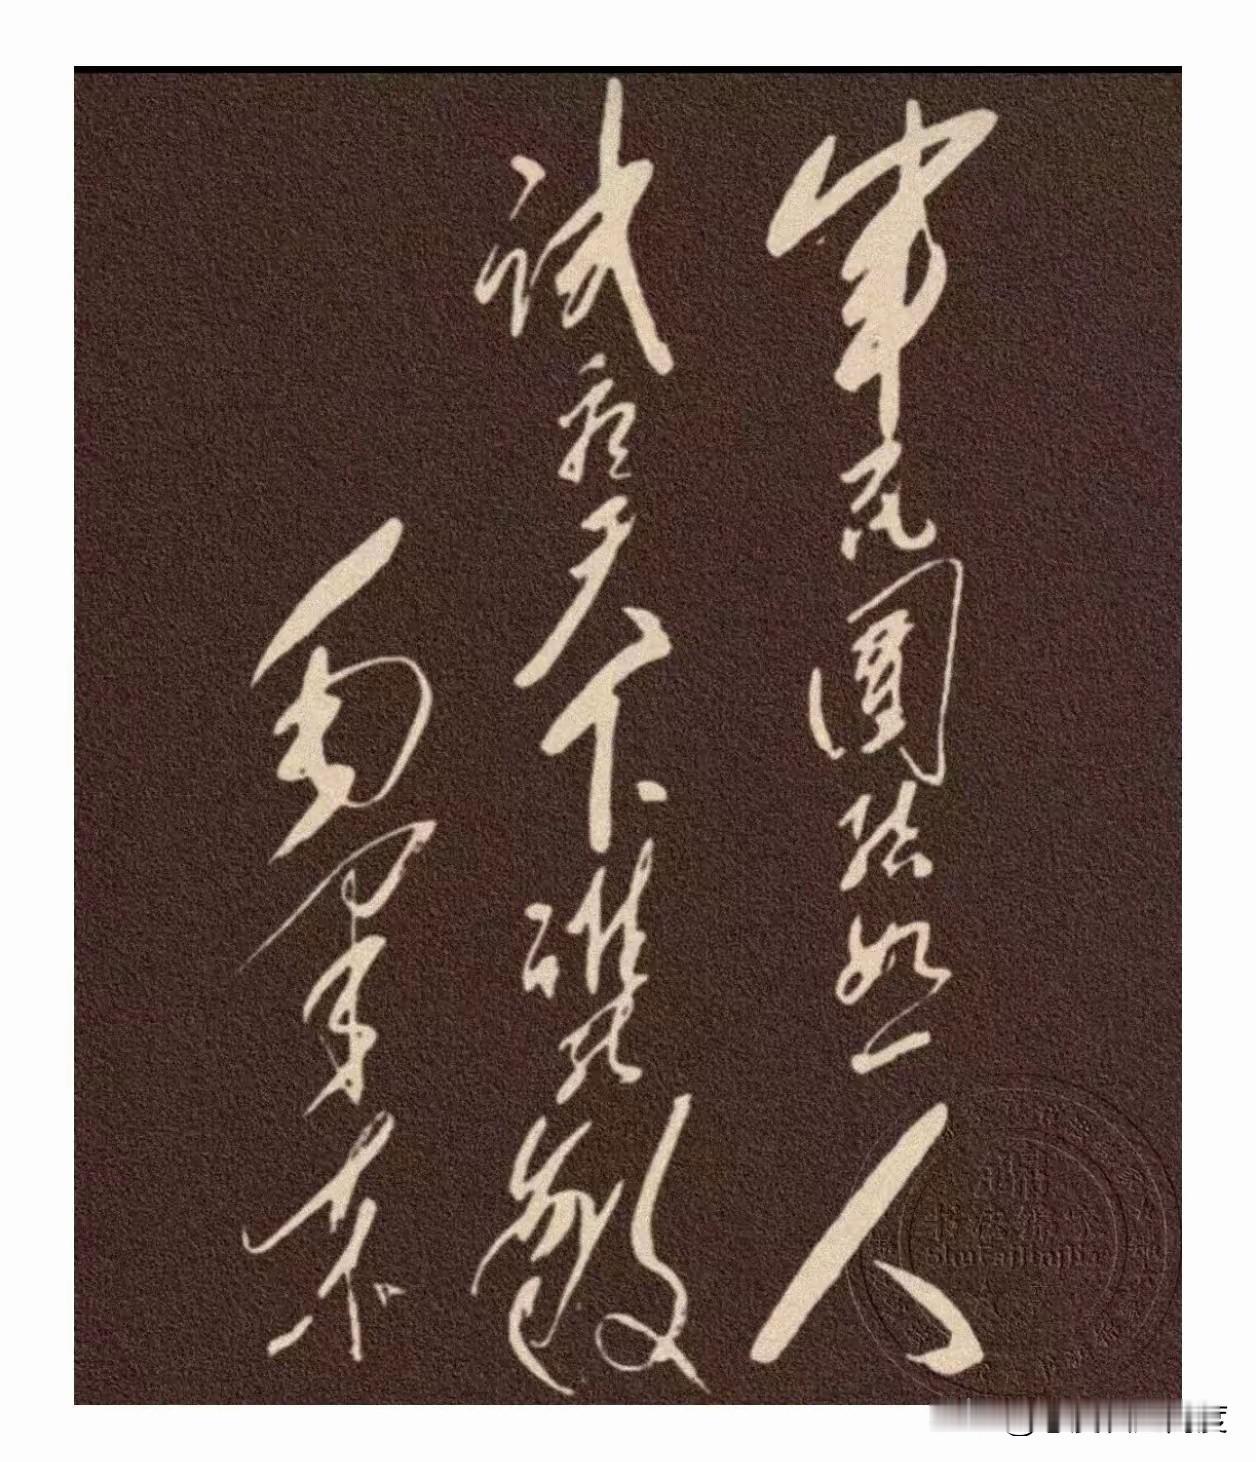 军民团结如一人
试看天下谁能敌
毛泽东
书法佛家
Shufajiajia